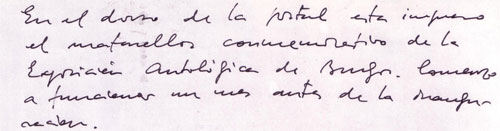 En el dorso de la postal esta impreso
el matasellos conmemorativo de la
Exposición Antológica de Burgos. Comenzo
a funcionar un mes antes de la inaugu-
racion.